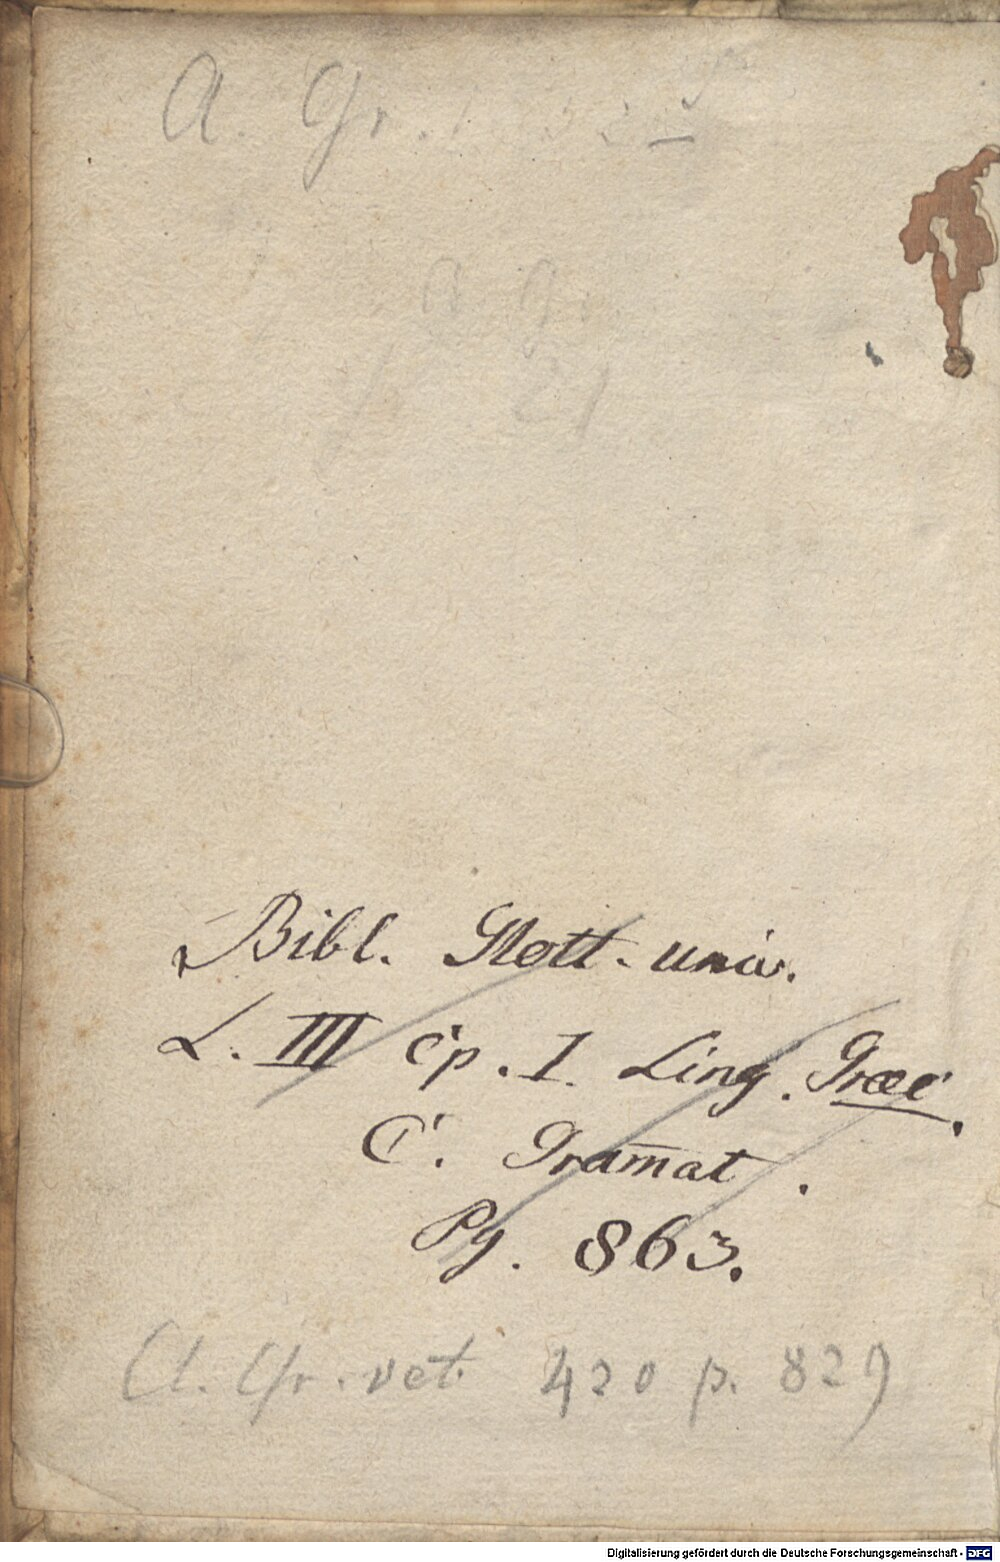 A. Gr.
A. Gr.
21
Bibl. Slott. univ.
L. III Cp. I. Ling. Græc.
C. Gram̄at.
Pg. 863.
Cl. Gr. vet. 420 p. 829
Digitalisierung gefördert durch die Deutsche Forschungsgemeinschaft - DFG